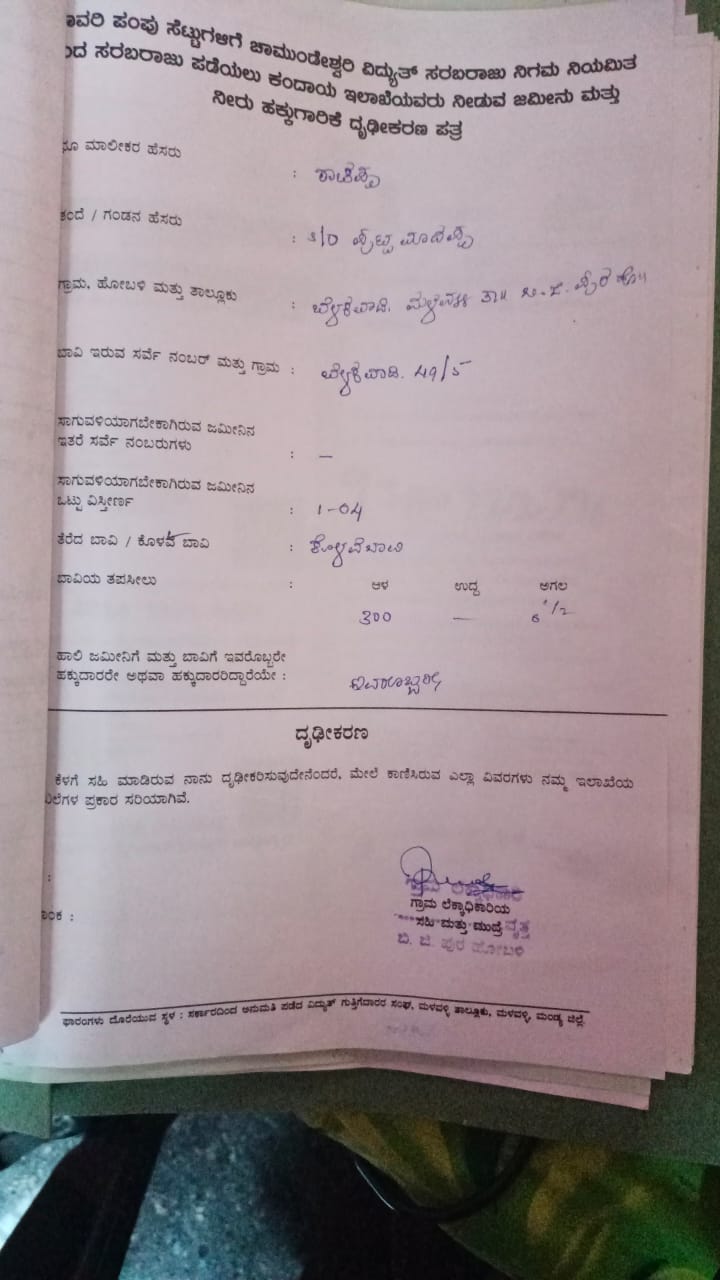 ಾವರಿ ಪಂಪು ಸೆಟ್ಟುಗಳಿಗೆ ಚಾಮುಂಡೇಶ್ವರಿ ವಿದ್ಯುತ್ ಸರಬರಾಜು ನಿಗಮ ನಿಯಮಿತ
ಂದ ಸರಬರಾಜು ಪಡೆಯಲು ಕಂದಾಯ ಇಲಾಖೆಯವರು ನೀಡುವ ಜಮೀನು ಮತ್ತು
ನೀರು ಹಕ್ಕುಗಾರಿಕೆ ದೃಢೀಕರಣ ಪತ್ರ
ಭೂ ಮಾಲೀಕರ ಹೆಸರು :
ತಂದೆ / ಗಂಡನ ಹೆಸರು : S/O
ಗ್ರಾಮ, ಹೋಬಳಿ ಮತ್ತು ತಾಲ್ಲೂಕು : ಬ್ಯಾಡವಾಡಿ. ಮಳವಳ್ಳಿ ತಾ॥
ಬಾವಿ ಇರುವ ಸರ್ವೆ ನಂಬರ್ ಮತ್ತು ಗ್ರಾಮ : 49/5
ಸಾಗುವಳಿಯಾಗಬೇಕಾಗಿರುವ ಜಮೀನಿನ
ಇತರೆ ಸರ್ವೆ ನಂಬರುಗಳು : —
ಸಾಗುವಳಿಯಾಗಬೇಕಾಗಿರುವ ಜಮೀನಿನ
ಒಟ್ಟು ವಿಸ್ತೀರ್ಣ : 1-04
ತೆರೆದ ಬಾವಿ / ಕೊಳವೆ ಬಾವಿ : ಕೊಳವೆಬಾವಿ
ಬಾವಿಯ ತಪಸೀಲು : ಆಳ ಉದ್ದ ಅಗಲ
300 — 6 1/2
ಹಾಲಿ ಜಮೀನಿಗೆ ಮತ್ತು ಬಾವಿಗೆ ಇವರೊಬ್ಬರೇ
ಹಕ್ಕುದಾರರೇ ಅಥವಾ ಹಕ್ಕುದಾರರಿದ್ದಾರೆಯೇ : ಇವರೊಬ್ಬರೇ
ದೃಢೀಕರಣ
ಕೆಳಗೆ ಸಹಿ ಮಾಡಿರುವ ನಾನು ದೃಢೀಕರಿಸುವುದೇನೆಂದರೆ, ಮೇಲೆ ಕಾಣಿಸಿರುವ ಎಲ್ಲಾ ವಿವರಗಳು ನಮ್ಮ ಇಲಾಖೆಯ
ಲೆಗಳ ಪ್ರಕಾರ ಸರಿಯಾಗಿವೆ.
:
ಾಂಕ :
ಗ್ರಾಮ ಲೆಕ್ಕಾಧಿಕಾರಿ
ಗ್ರಾಮ ಲೆಕ್ಕಾಧಿಕಾರಿಯ
ಸಹಿ ಮತ್ತು ಮುದ್ರೆ ವೃತ್ತ
ಬಿ. ಜಿ. ಪುರ ಹೋಬಳಿ
ಫಾರಂಗಳು ದೊರೆಯುವ ಸ್ಥಳ : ಸರ್ಕಾರದಿಂದ ಅನುಮತಿ ಪಡೆದ ವಿದ್ಯುತ್ ಗುತ್ತಿಗೆದಾರರ ಸಂಘ, ಮಳವಳ್ಳಿ ತಾಲ್ಲೂಕು, ಮಳವಳ್ಳಿ, ಮಂಡ್ಯ ಜಿಲ್ಲೆ.